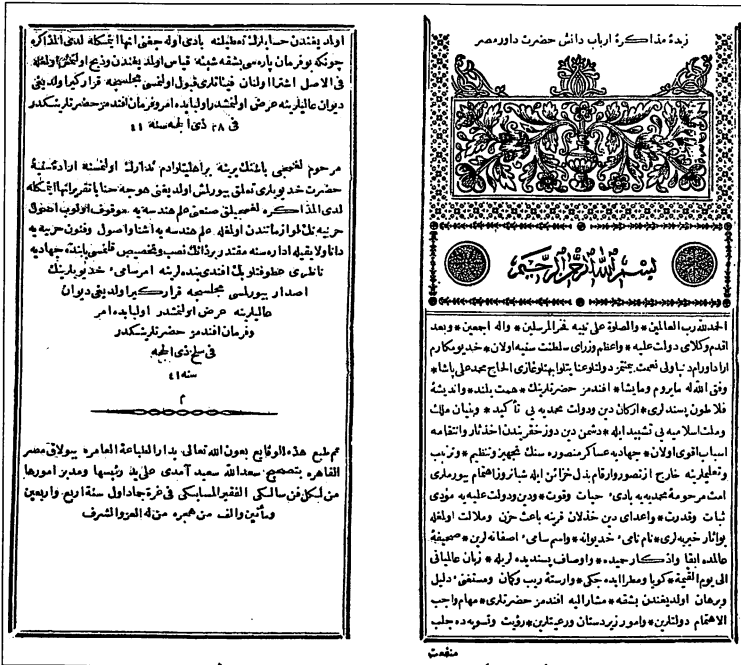 زبدهٔ مذاكرهٔ ارباب دانش حضرت داور مصر
بسم الله الرحمن الرحيم
الحمد لله رب العالمين * والصلوة على نبيه فخر المرسلين * واله اجمعين * وبعد
اقدم وكلاى دولت عليه * واعظم وزراى سلطنت سنيه اولان * خديو مكارم
الحاج محمد على پاشا *
وفق الله له مايروم ومايشا * افندمز حضرتلرينك * همت بلند * وانديشهٔ
فلاطون پسندلرى * اركان دين ودولت محمديه يى تأكيد * وبنيان ملك
وملت اسلاميه يى تشييد ايله * دشمن دين دوزخ قريندن اخذ ثار وانتقامه
اسباب اقوى اولان * جهاديه عساكر منصوره سنك تجهيز وتنظيم * وترتيب
وتعليملرينه خارج از تصور وارقام بذل خزائن ايله شبانروز اهتمام بيورملرى
امت مرحومهٔ محمديه يه بادىء حيات وقوت * ودين ودولت عليه يه مؤدى
ثبات وقدرت * واعداى دين خذلان قرينه باعث حزن وملالت اولمغله
بو آثار خيريه لرى * نام نامىء خديوانه * واسم سامىء اصفانه لرين * صحيفهٔ
عالمده ابقا واذكار حميده * واوصاف پسنديده لريله * زبان عالميانى
الى يوم القيمة * كويا ومطرا ايده جكى * وارستهٔ ريب وكمان ومستغنىء دليل
وبرهان اولديغندن بشقه * مشار اليه افندمز حضرتلرى * مهام واجب
الاهتمام دولتلرين * وامور زيردستان ورعيتلرين * رؤيت وتسويه ده جلب
منفعت
اولديغندن حسابلرك تعطيلنه بادى اوله جغنى انها ايتمكله لدى المذاكره
چونكه بو فرمان پاره سى بشقه شيئه قياس اولديغندن
فى الاصل اشترا اولنان فيئاتلرى قبول اولنمسى مجلسجه قراركير اولديغى
ديوان عاليلرينه عرض اولنمشدر اول بابده امر وفرمان افندمز حضرتلرينكدر
فى ٢٨ ذى الحجه سنه ٤١
مرحوم لغمجى باشنك يرينه بر اهليتلو ادم تدارك اولنمسنه ارادهٔ سنيهٔ
حضرت خديويلرى تعلق بيورلمش اولديغنى خوجه حنا با تقرير انها ايتمكله
لدى المذاكره لغمجيلق صنعتى علم هندسه يه موقوف الوب اصول
حربيه نك لوازماتندن اولمغله علم هندسه يه آشنا واصول وفنون حربيه يه
دانا ولايقيله اداره سنه مقتدر بر ذاتك نصب وتخصيص قلنمسى بابنده جهاديه
ناظرى عطوفتلو بك افندى بنده لرينه امر سامىء خديويلرينك
اصدار بيورلمسى مجلسجه قراركير اولديغى ديوان
عاليلرينه عرض اولنمشدر اول بابده امر
وفرمان افندمز حضرتلرينكدر
فى سلخ ذى الحجه
سنه ٤١
م
تم طبع هذه الوقايع بعون الله تعالى بدار الطباعة العامره ببولاق مصر
القاهره بتصحيح سعد الله سعيد آمدى على يد رئيسها ومدبر امورها
من لكل فن سالكى الفقير المسابكى فى غرة جماد اول سنة اربع واربعين
ومأتين والف من هجرة من له العز والشرف